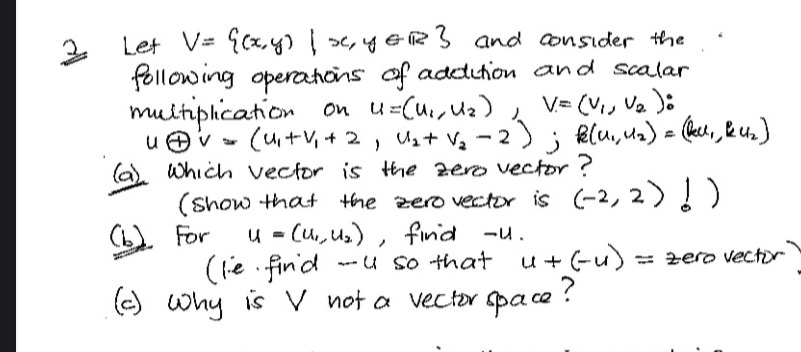 2 Let V= {(x,y) | x, y ∈ ℝ} and consider the
following operations of addition and scalar
multiplication on u=(u₁,u₂), V=(V₁, V₂):
u ⊕ v = (u₁+V₁+2, u₂+V₂-2); k(u₁,u₂) = (ku₁,ku₂)
(a) Which vector is the zero vector?
(show that the zero vector is (-2, 2)!)
(b) For u = (u₁,u₂), find -u.
(ie. find -u so that u+(-u) = zero vector)
(c) Why is V not a vector space?